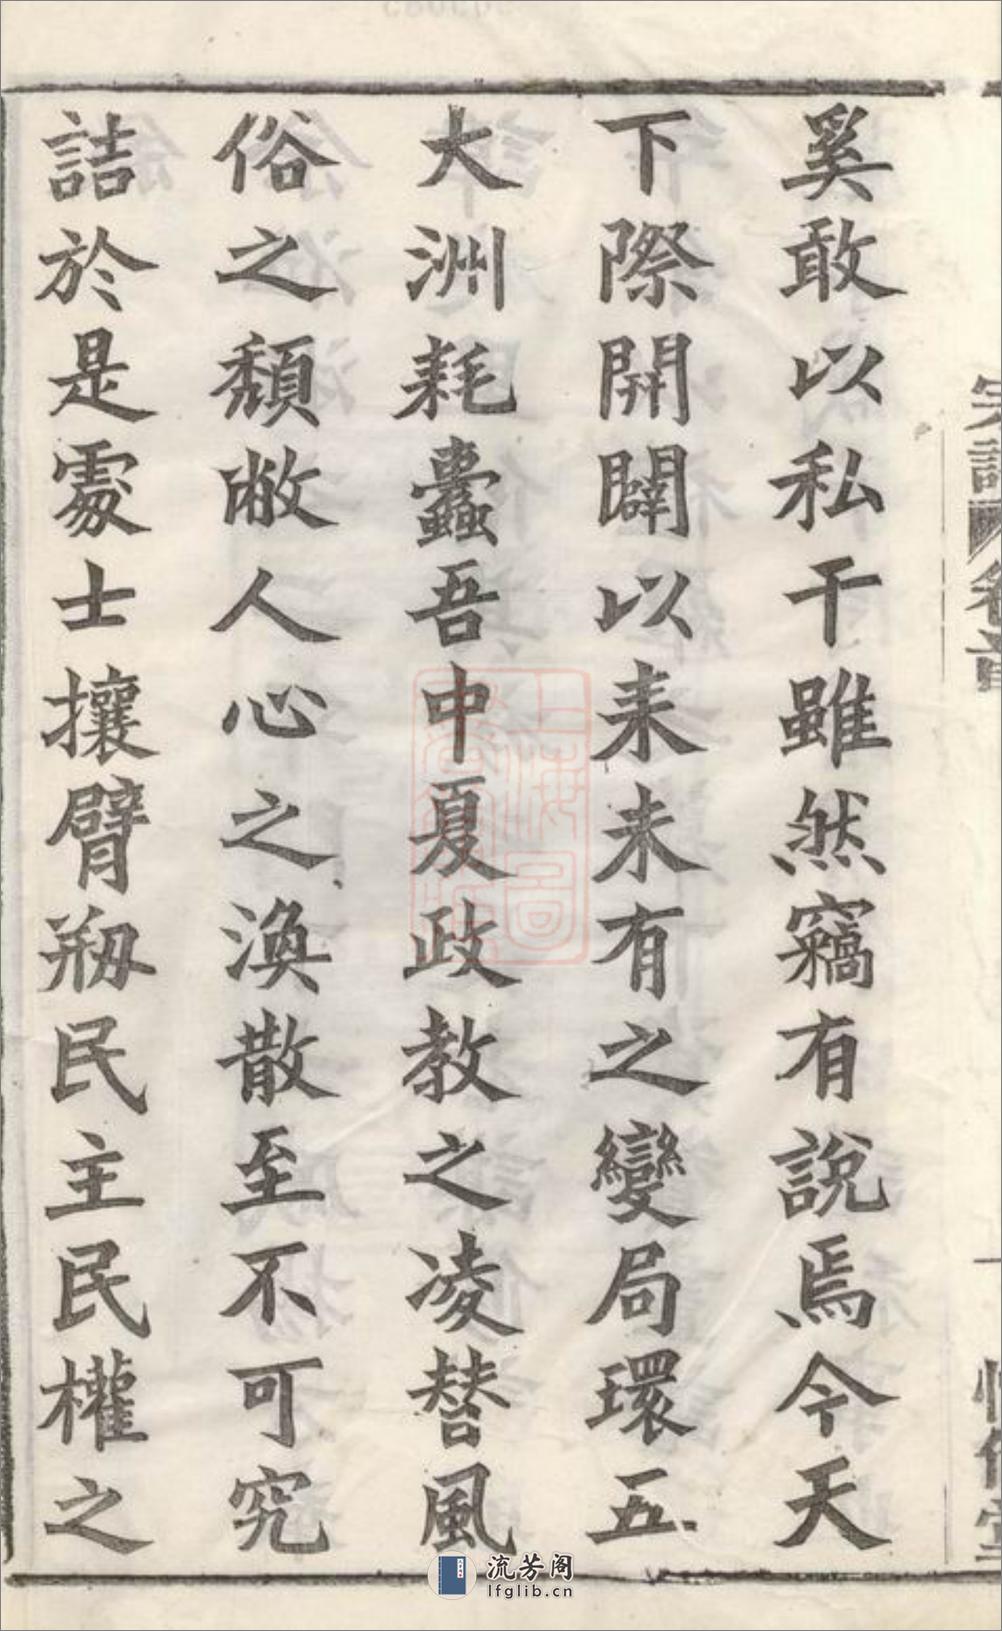 奚敢以私干雖然竊有說焉今天
下際開闢以来未有之變局環五
大洲耗蠹吾中夏政教之凌替風
俗之頹敝人心之渙散至不可究
詰於是處士攘臂剏民主民權之
流芳阁
lfglib.cn